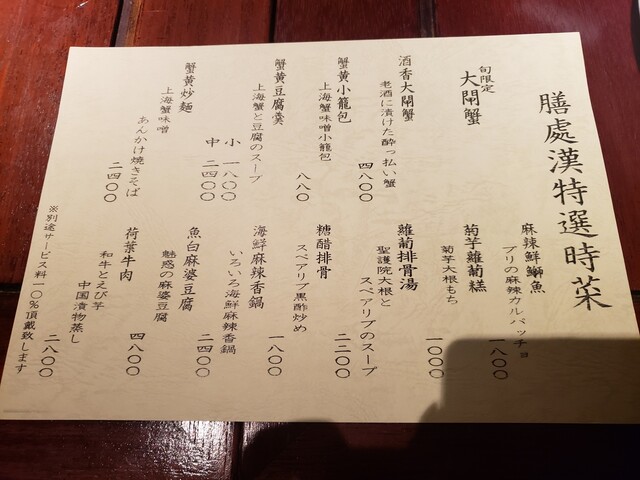 膳處漢特選時菜
旬限定
大閘蟹
酒香大閘蟹
老酒に漬けた酔っ払い蟹
四八〇〇
蟹黄小籠包
上海蟹味噌小籠包
八八〇
蟹黄豆腐羹
上海蟹と豆腐のスープ
小 一八〇〇
中 二四〇〇
蟹黄炒麺
上海蟹味噌
あんかけ焼きそば
二四〇〇
麻辣鮮鰤魚
ブリの麻辣カルパッチョ
一八〇〇
菊芋蘿蔔糕
菊芋大根もち
一〇〇〇
蘿蔔排骨湯
聖護院大根と
スペアリブのスープ
二二〇〇
糖醋排骨
スペアリブ黒酢炒め
一八〇〇
海鮮麻辣香鍋
いろいろ海鮮麻辣香鍋
二四〇〇
魚白麻婆豆腐
魅惑の麻婆豆腐
四八〇〇
荷葉牛肉
和牛とえび芋
中国漬物蒸し
二八〇〇
※別途サービス料一〇%頂戴致します